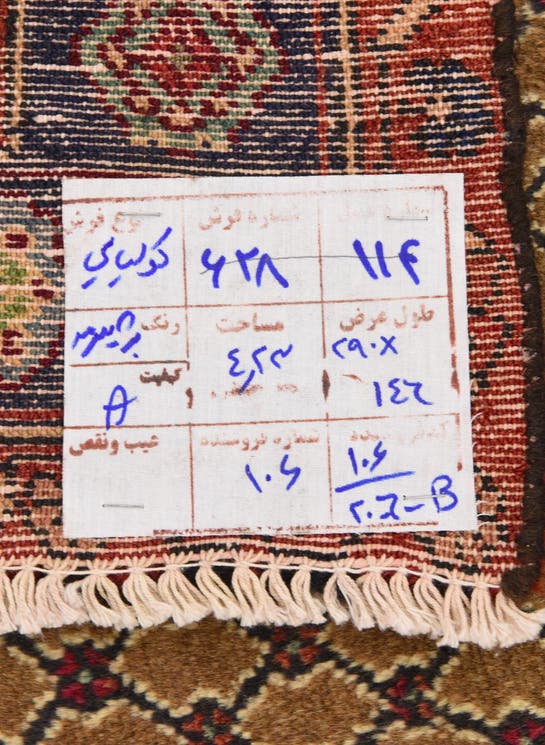 شماره فرش نوع فرش
۱۱۴ ۶۲۸ کولیایی
طول عرض مساحت رنگ
۲۹۰×
۱۴۶
۴,۲۳
کیفیت
A
شماره فروشنده عیب ونقص
۱۰۶
۱۰۶